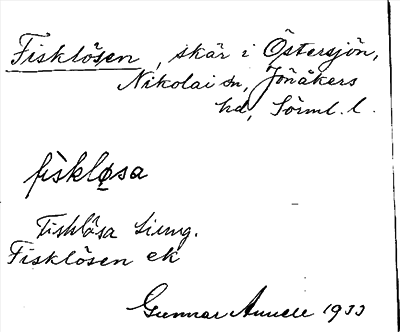 Fisklösen, skär i Östersjön,
Nikolai sn, Jönåkers
hd, Sörml. l.
fiskløsa
Fisklösa Ljung.
Fisklösen ek
Gunnar Annell 1933